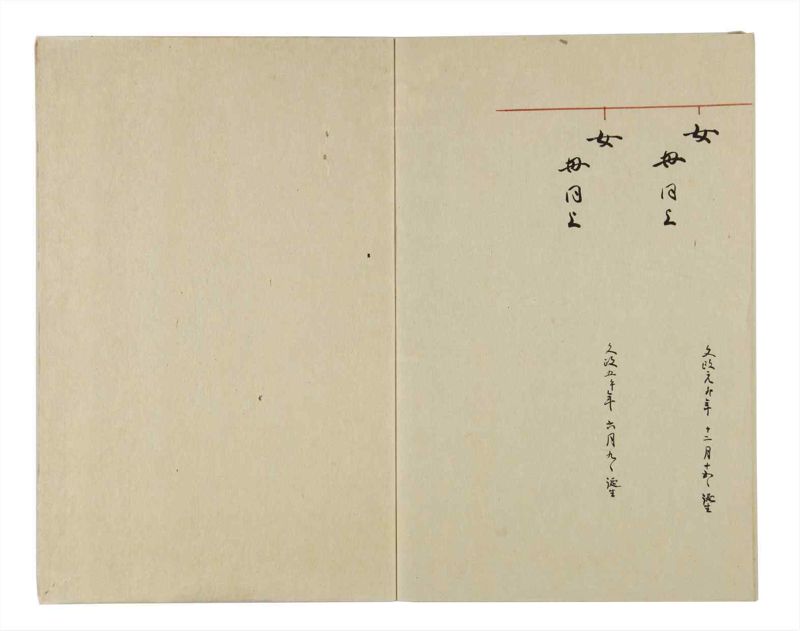 女
母同上
文政元年 十二月十日 誕生
女
母同上
文政五午年 六月九日 誕生